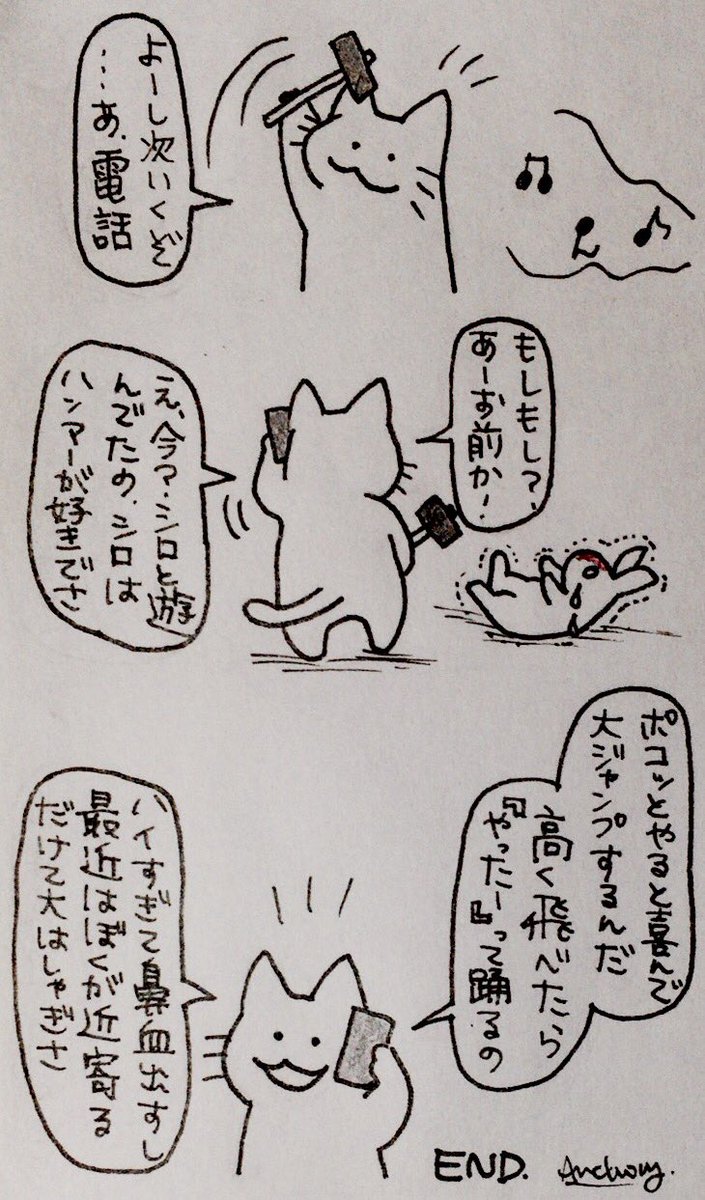 よーし次いくぞ
…あ、電話
もしもし?、
あーお前か!
え、今?シロと遊
んでたの、シロは
ハンマーが好きでさ
ポコッとやると喜んで
大ジャンプするんだ
高く飛べたら
『やったー』って踊るの
ハイすぎて鼻血出すし
最近はぼくが近寄る
だけで大はしゃぎさ
END.